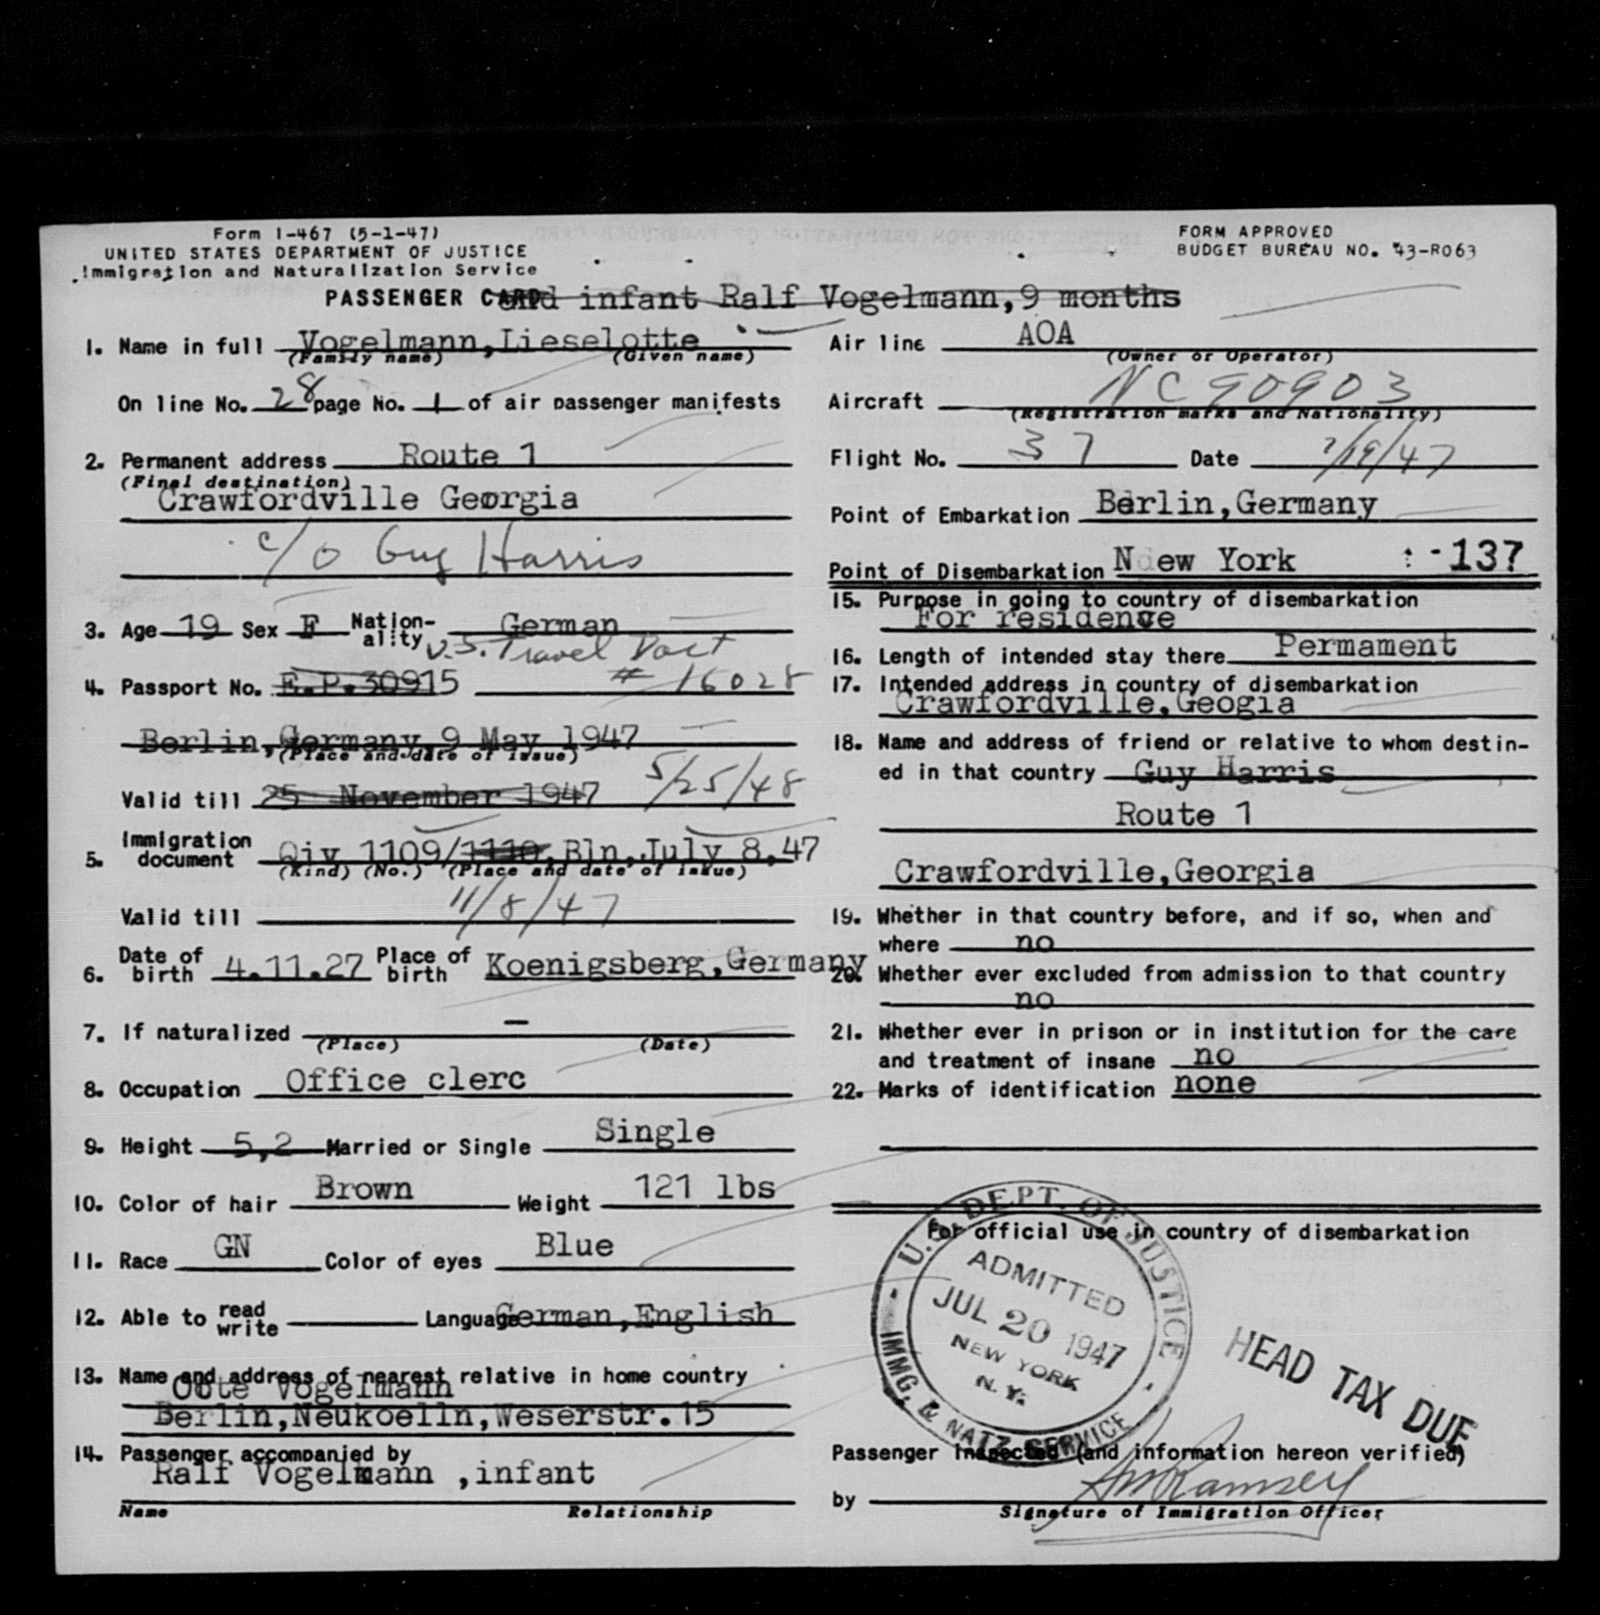 Form I-467 (5-1-47)
UNITED STATES DEPARTMENT OF JUSTICE
Immigration and Naturalization Service
FORM APPROVED
BUDGET BUREAU NO. 43-R063
PASSENGER CARD and infant Ralf Vogelmann,9 months
1. Name in full Vogelmann,Lieselotte
(Family name) (Given name)
On line No. 28 page No. 1 of air passenger manifests
2. Permanent address Route 1
(Final destination)
Crawfordville Georgia
c/o Guy Harris
3. Age 19 Sex F Nation-ality German
U.S. Travel Doct
4. Passport No. E.P.30915 # 16028
Berlin,Germany 9 May 1947
(Place and date of issue)
Valid till 25 November 1947 5/25/48
5. Immigration document Qiv 1109/1110,Bln.July 8,47
(Kind) (No.) (Place and date of issue)
Valid till 11/8/47
6. Date of birth 4.11.27 Place of birth Koenigsberg,Germany
7. If naturalized —
(Place) (Date)
8. Occupation Office clerc
9. Height 5,2 Married or Single Single
10. Color of hair Brown Weight 121 lbs
11. Race GN Color of eyes Blue
12. Able to read write Language German,English
13. Name and address of nearest relative in home country
Vogelmann
Berlin,Neukoelln,Weserstr.15
14. Passenger accompanied by
Ralf Vogelmann ,infant
Name Relationship
Air line AOA
(Owner or Operator)
Aircraft NC90903
(Registration marks and Nationality)
Flight No. 37 Date 7/19/47
Point of Embarkation Berlin,Germany
Point of Disembarkation New York -137
15. Purpose in going to country of disembarkation
For residence
16. Length of intended stay there Permament
17. Intended address in country of disembarkation
Crawfordville,Geogia
18. Name and address of friend or relative to whom destin-
ed in that country Guy Harris
Route 1
Crawfordville,Georgia
19. Whether in that country before, and if so, when and
where no
20. Whether ever excluded from admission to that country
no
21. Whether ever in prison or in institution for the care
and treatment of insane no
22. Marks of identification none
For official use in country of disembarkation
U.S. DEPT. OF JUSTICE
ADMITTED
JUL 20 1947
NEW YORK
N.Y.
IMMG. & NATZ. SERVICE
HEAD TAX DUE
Passenger inspected (and information hereon verified)
by Ramsey
Signature of Immigration Officer